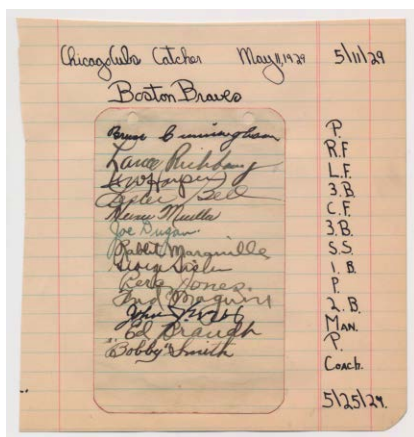 Chicago Cubs Catcher May 11, 1929 5/11/29
Boston Braves
Bruce Cunningham P.
Lance Richbourg R.F
Geo Harper L.F.
Lester Bell 3.B
Heinie Mueller C.F.
Joe Dugan 3.B.
Rabbit Maranville S.S.
George Sisler 1.B.
Percy Jones. P
Fred Maguire 2.B.
John J. Evers Man.
Ed Brandt P.
"Bobby" Smith Coach.
5/25/29.